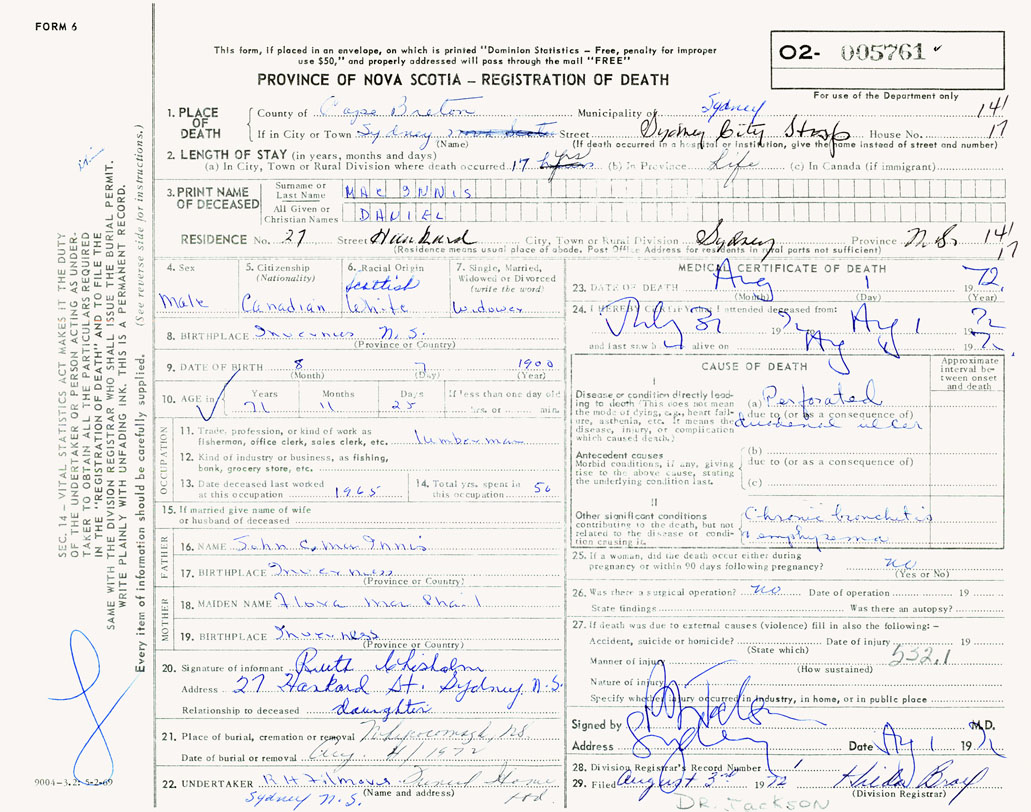 FORM 6
This form, if placed in an envelope, on which is printed "Dominion Statistics – Free, penalty for improper
use $50," and properly addressed will pass through the mail "FREE"
PROVINCE OF NOVA SCOTIA – REGISTRATION OF DEATH
02- 005761
For use of the Department only
1. PLACE OF DEATH
County of Cape Breton Municipality of Sydney 141
If in City or Town Sydney Street Sydney City Hosp House No. 17
(Name) (If death occurred in a hospital or Institution, give the name instead of street and number)
2. LENGTH OF STAY (in years, months and days)
(a) In City, Town or Rural Division where death occurred 17 yrs (b) In Province Life (c) In Canada (if immigrant)
3. PRINT NAME OF DECEASED
Surname or Last Name MAC INNIS
All Given or Christian Names DANIEL
RESIDENCE No. 27 Street Hankard City, Town or Rural Division Sydney Province N.S. 141
(Residence means usual place of abode. Post Office Address for residents in rural parts not sufficient) 17
4. Sex Male
5. Citizenship (Nationality) Canadian
6. Racial Origin Scottish White
7. Single, Married, Widowed or Divorced (write the word) Widower
8. BIRTHPLACE Inverness N.S.
(Province or Country)
9. DATE OF BIRTH 8 7 1900
(Month) (Day) (Year)
10. AGE in Years Months Days If less than one day old
71 11 25 hrs. or min.
OCCUPATION
11. Trade, profession, or kind of work as
fisherman, office clerk, sales clerk, etc. lumberman
12. Kind of industry or business, as fishing,
bank, grocery store, etc.
13. Date deceased last worked at this occupation 1965
14. Total yrs. spent in this occupation 50
15. If married give name of wife
or husband of deceased
FATHER
16. NAME John C. MacInnis
17. BIRTHPLACE Inverness
(Province or Country)
MOTHER
18. MAIDEN NAME Flora MacPhail
19. BIRTHPLACE Inverness
(Province or Country)
20. Signature of informant Ruth Chisholm
Address 27 Hankard St. Sydney N.S.
Relationship to deceased daughter
21. Place of burial, cremation or removal Whycocomagh, N.S.
Date of burial or removal Aug 4/1972
22. UNDERTAKER Funeral Home
(Name and address) Ltd.
Sydney N.S.
MEDICAL CERTIFICATE OF DEATH
23. DATE OF DEATH Aug 1 1972
(Month) (Day) (Year)
24. I HEREBY CERTIFY that I attended deceased from:
July 31 1972 Aug 1 1972
and last saw h alive on Aug 1 1972
CAUSE OF DEATH
Approximate interval between onset and death
I
Disease or condition directly leading to death (This does not mean
the mode of dying, e.g., heart failure, asthenia, etc. It means the
disease, injury, or complication
which caused death.)
(a) Perforated
due to (or as a consequence of)
duodenal ulcer
Antecedent causes
Morbid conditions, if any, giving
rise to the above cause, stating
the underlying condition last.
(b)
due to (or as a consequence of)
(c)
II
Other significant conditions
contributing to the death, but not
related to the disease or condition causing it.
Chronic bronchitis
emphysema
25. If a woman, did the death occur either during
pregnancy or within 90 days following pregnancy? no
(Yes or No)
26. Was there a surgical operation? no Date of operation 19
State findings Was there an autopsy?
27. If death was due to external causes (violence) fill in also the following: –
Accident, suicide or homicide? Date of injury 19
(State which) 532.1
Manner of injury
(How sustained)
Nature of injury
Specify whether injury occurred in industry, in home, or in public place
Signed by M.D.
Address Sydney Date Aug 1 1972
28. Division Registrar's Record Number
29. Filed August 3rd 1972 Hilda
(Division Registrar)
DR. JACKSON
SEC. 14 – VITAL STATISTICS ACT MAKES IT THE DUTY
OF THE UNDERTAKER OR PERSON ACTING AS UNDER-
TAKER TO OBTAIN ALL THE PARTICULARS REQUIRED
IN THE "REGISTRATION OF DEATH" AND TO FILE THE
SAME WITH THE DIVISION REGISTRAR WHO SHALL ISSUE THE BURIAL PERMIT.
WRITE PLAINLY WITH UNFADING INK. THIS IS A PERMANENT RECORD.
Every item of information should be carefully supplied. (See reverse side for instructions.)
9004-3.2: 5-2-69